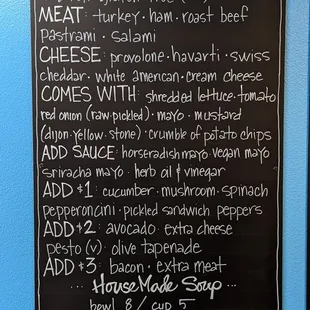 MEAT: turkey · ham · roast beef
pastrami · salami
CHEESE: provolone · havarti · swiss
cheddar · white american · cream cheese
COMES WITH: shredded lettuce · tomato
red onion (raw · pickled) · mayo · mustard
(dijon · yellow · stone) · crumble of potato chips
ADD SAUCE: horseradish mayo · vegan mayo
sriracha mayo · herb oil & vinegar
ADD $1: cucumber · mushroom · spinach
pepperoncini · pickled sandwich peppers
ADD $2: avocado · extra cheese
pesto (v) · olive tapenade
ADD $3: bacon · extra meat
... HouseMade Soup ...
bowl 8 / cup 5